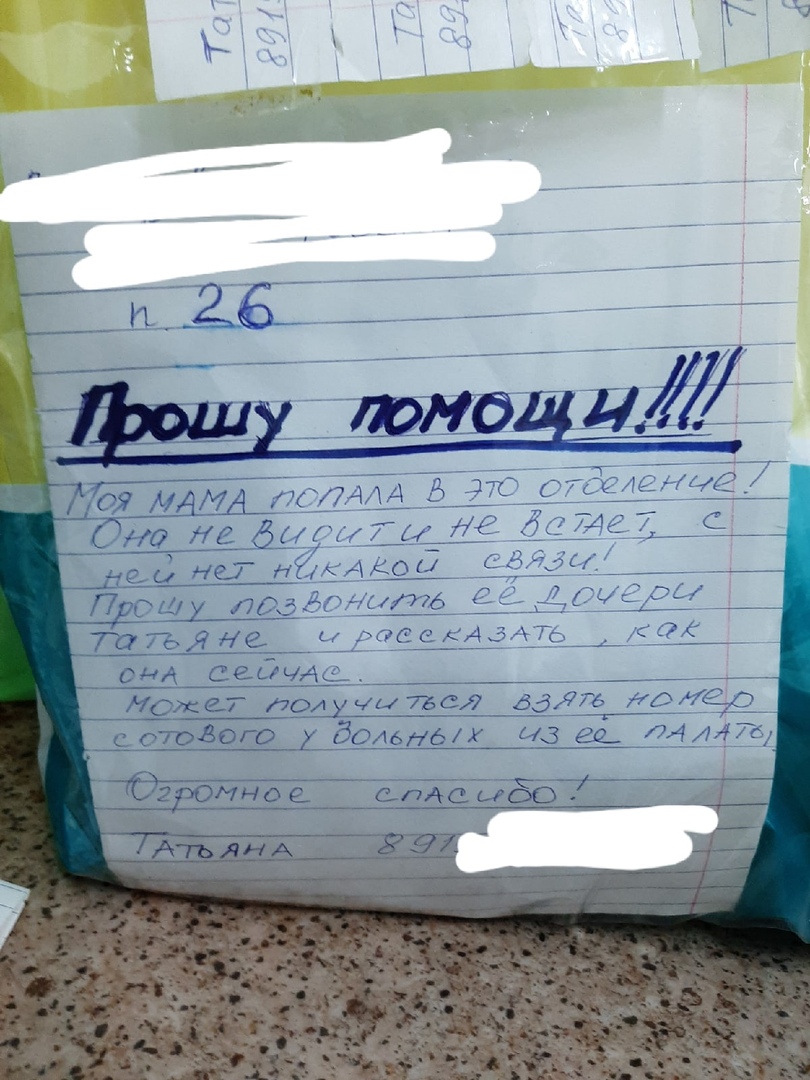 Тат
891
Та
89
Та
89
п. 26
Прошу помощи!!!!
Моя мама попала в это отделение!
Она не видит и не встает, с
ней нет никакой связи!
Прошу позвонить её дочери
Татьяне и рассказать, как
она сейчас.
Может получиться взять номер
сотового у больных из её палаты
Огромное спасибо!
Татьяна 891